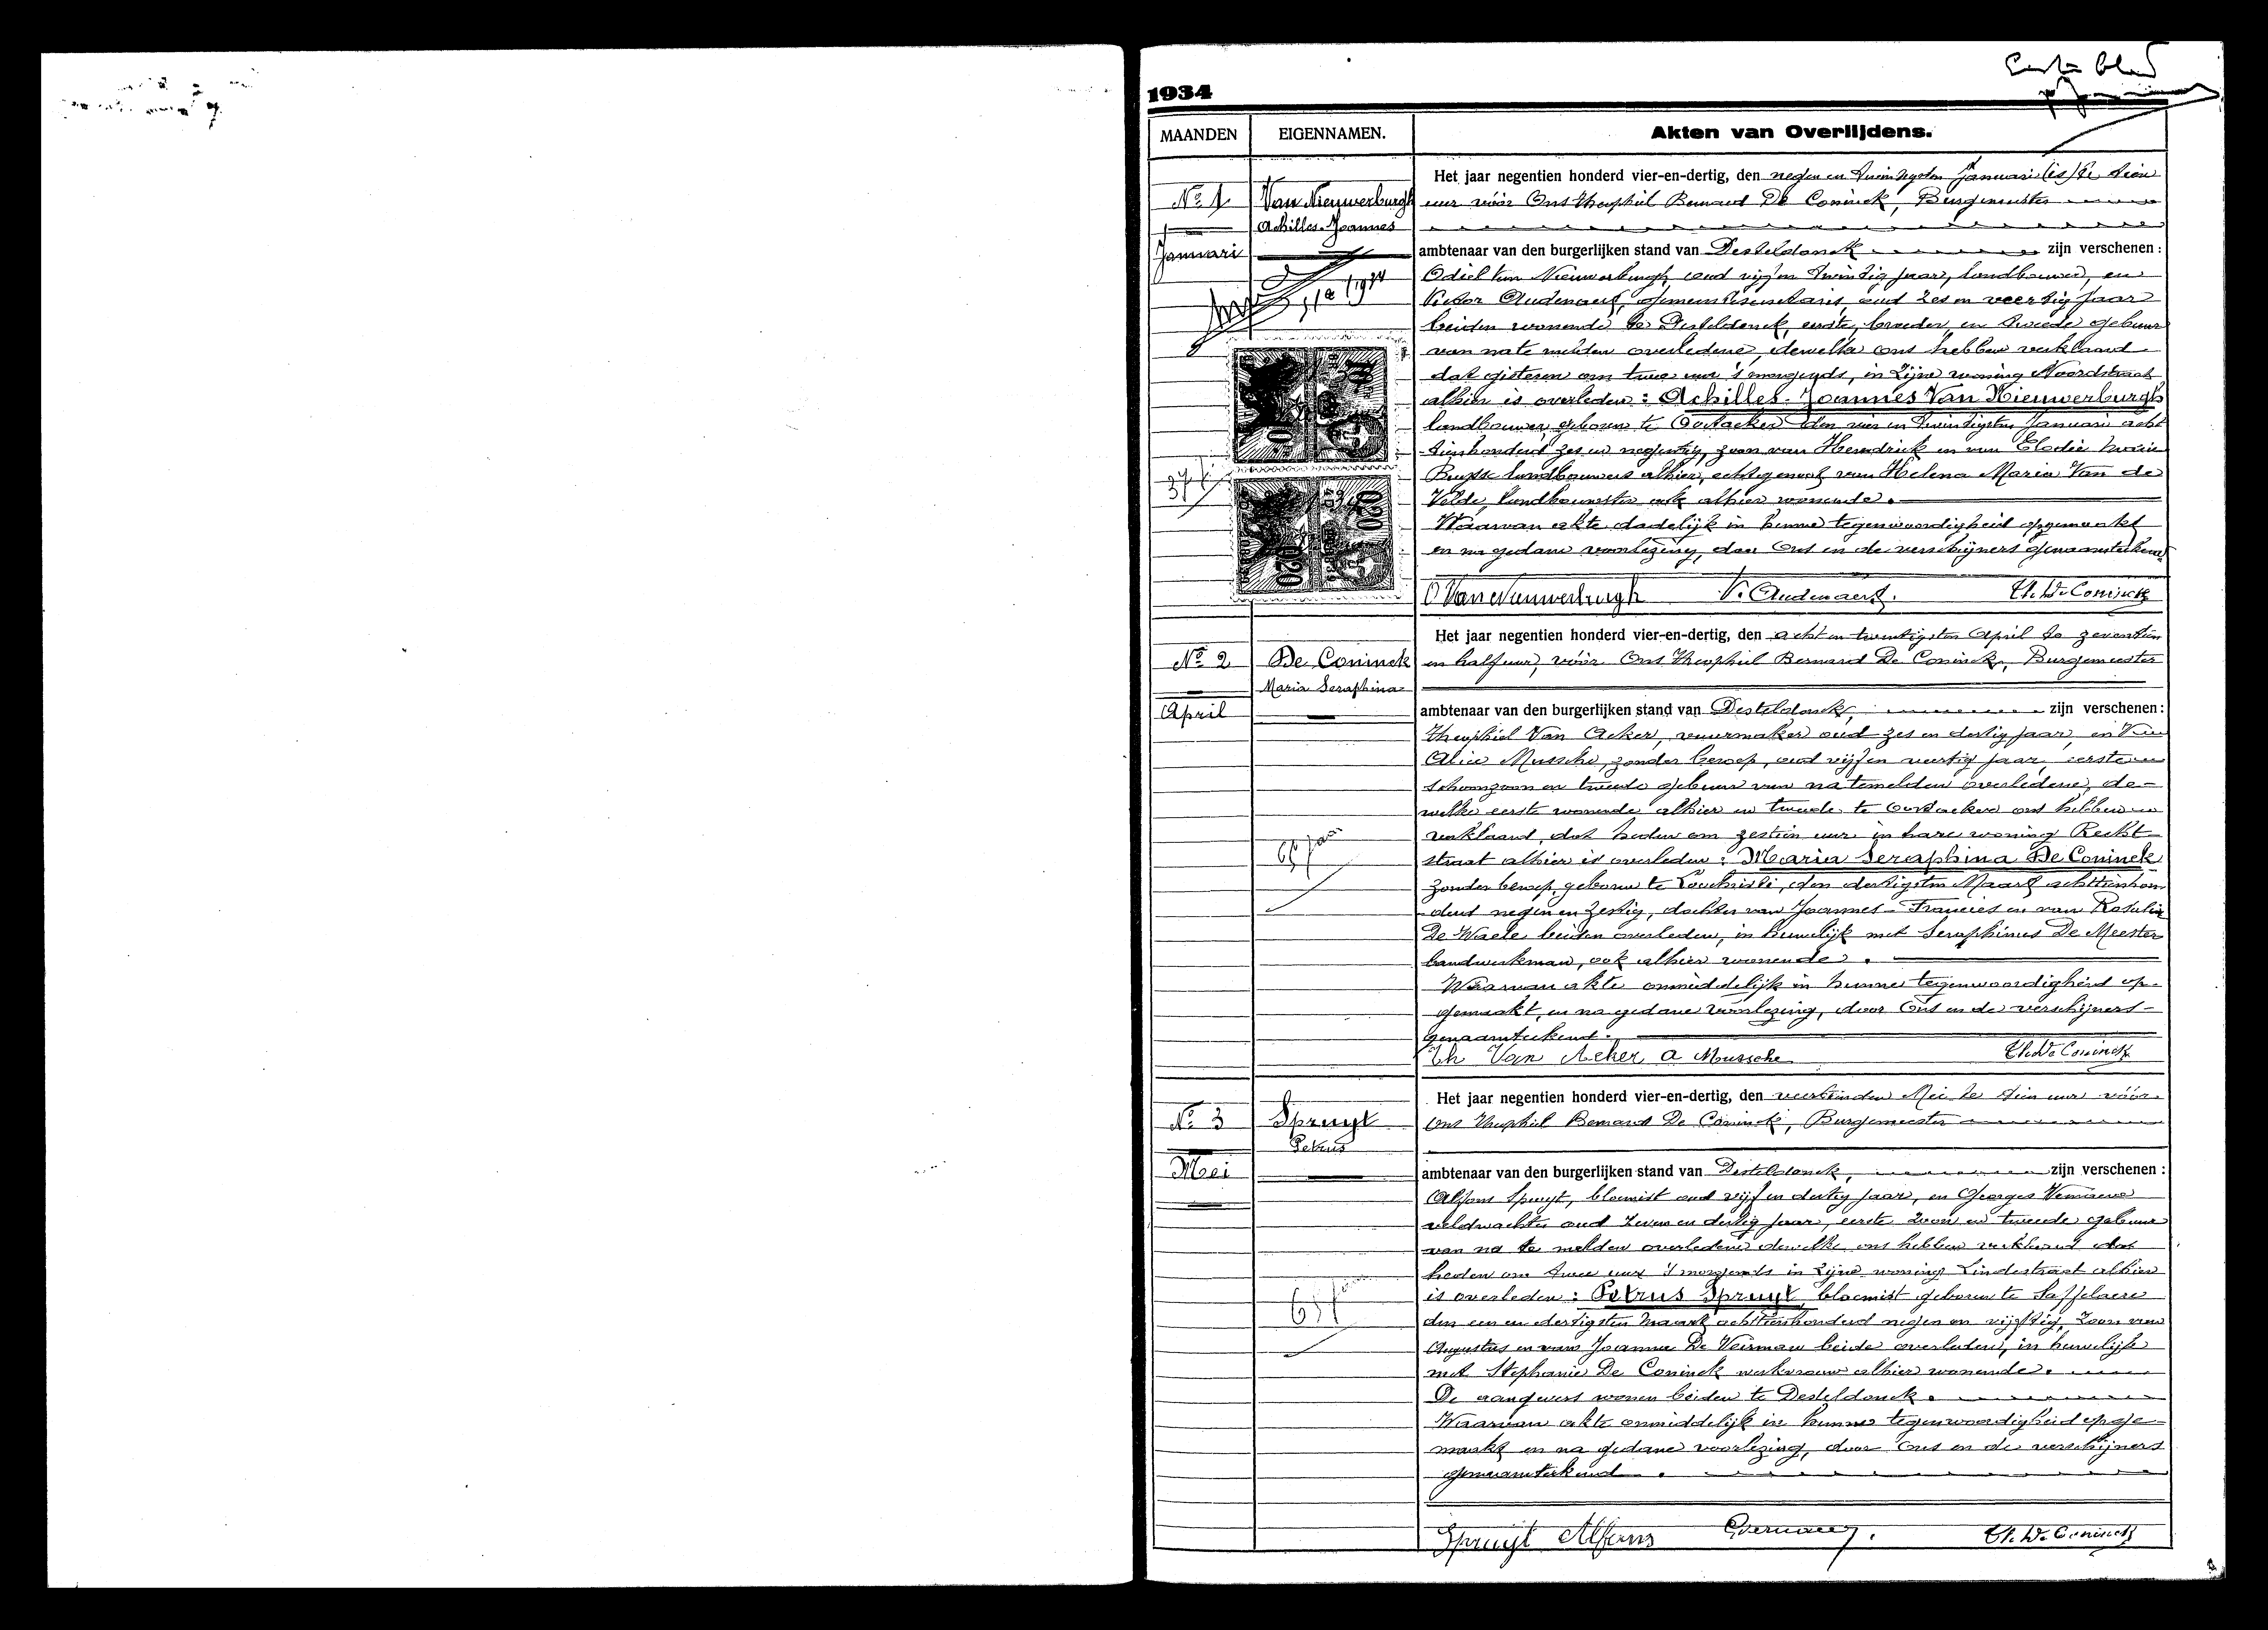 1934
MAANDEN
EIGENNAMEN.
Akten van Overlijdens.
No 1
Van Nieuwerburgh
Achilles-Joannes
Januari
Het jaar negentien honderd vier-en-dertig, den negen en twintigsten Januari te tien
uur vóór Ons Theophiel Bernard De Coninck, Burgemeester
ambtenaar van den burgerlijken stand van Desteldonck zijn verschenen :
Odiel Van Nieuwerburgh, oud vijf en twintig jaar, landbouwer, en
Victor Audenaert, gemeentesecretaris, oud zes en veertig jaar
beiden wonende te Desteldonck, eerste broeder, en tweede gebuur
van nate melden overledene, dewelke ons hebben verklaard
dat gisteren om twee uur 's morgends, in zijne woning Noordstraat
alhier is overleden : Achilles-Joannes Van Nieuwerburgh
landbouwer, geboren te Oostacker den vier en twintigsten Januari acht
tienhonderd zes en negentig, zoon van Hendrick en van Elodie Marie
Buysse landbouwers alhier, echtgenoot van Helena Maria Van de
Velde, landbouwster ook alhier wonende.
Waarvan akte dadelijk in hunne tegenwoordigheid opgemaakt
en na gedane voorlezing, door Ons en de verschijners genaamteekend
O Van Nieuwerburgh V. Audenaert. Th. De Coninck
No 2
De Coninck
Maria Seraphina
April
Het jaar negentien honderd vier-en-dertig, den acht en twintigsten April te zeventien
en half uur, vóór Ons Theophiel Bernard De Coninck, Burgemeester
ambtenaar van den burgerlijken stand van Desteldonck, zijn verschenen :
Theophiel Van Acker, vuurmaker oud zes en dertig jaar, en
Alice Mussche, zonder beroep, oud vijf en veertig jaar, eerste
schoonzoon en tweede gebuur van natemelden overledene, de-
welke eerste wonende alhier en tweede te Oostacker ons hebben
verklaard, dat heden om zestien uur in hare woning Recht-
straat alhier is overleden : Maria Seraphina De Coninck
zonder beroep, geboren te Loochristi, den dertigsten Maart achttienhon
derd negen en zestig, dochter van Joannes-Francies en van Rosalie
De Waele beiden overleden, in huwelijk met Seraphinus De Meester
landwerkman, ook alhier wonende.
Waarvan akte onmiddelijk in hunne tegenwoordigheid op-
gemaakt, en na gedane voorlezing, door Ons en de verschijners
genaamteekend.
Th Van Acker A Mussche Th. De Coninck
No 3
Spruyt
Petrus
Mei
Het jaar negentien honderd vier-en-dertig, den veertienden Mei te tien uur vóór
Ons Theophiel Bernard De Coninck, Burgemeester
ambtenaar van den burgerlijken stand van Desteldonck, zijn verschenen :
Alfons Spruyt, bloemist oud vijf en dertig jaar, en Georges
veldwachter oud zeven en dertig jaar, eerste zoon en tweede gebuur
van na te melden overledene dewelke ons hebben verklaard dat
heden om twee uur 's morgends in zijne woning Lindestraat alhier
is overleden : Petrus Spruyt, bloemist geboren te Saffelaere
den een en dertigsten Maart achttienhonderd negen en vijftig, zoon van
Augustus en van Joanna De Veirman beide overleden, in huwelijk
met Stephanie De Coninck werkvrouw alhier wonende.
De aangevers wonen beiden te Desteldonck.
Waarvan akte onmiddelijk in hunne tegenwoordigheid opge-
maakt en na gedane voorlezing, door Ons en de verschijners
genaamteekend.
Spruyt Alfons Th. De Coninck